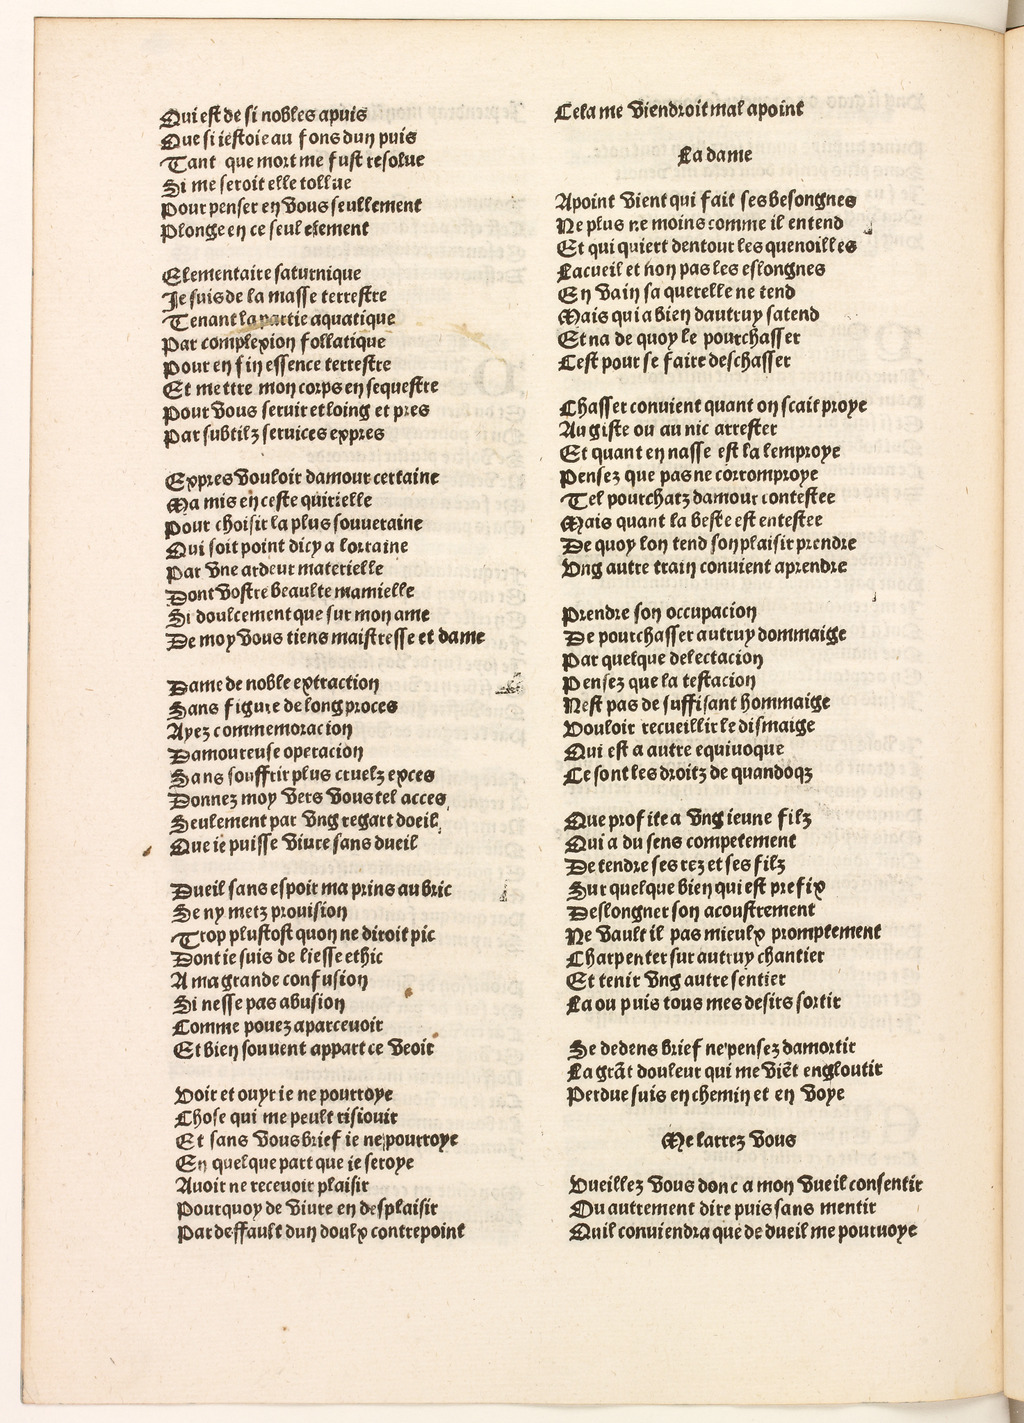 Qui est de si nobles apuis
Que si iestoie au fons dun puis
Tant que mort me fust resolue
Si me seroit elle tollue
Pour penser en vous seullement
Plonge en ce seul element
Elementaire saturnique
Je suis de la masse terrestre
Tenant la partie aquatique
Par complexion follatique
Pour en fin essence terrestre
Et mettre mon corps en sequestre
Pour vous seruir et loing et pres
Par subtilz seruices expres
Expres vouloir damour certaine
Ma mis en ceste quirielle
Pour choisir la plus souueraine
Qui soit point dicy a lorraine
Par vne ardeur materielle
Dont vostre beaulte mamielle
Si doulcement que sur mon ame
De moy vous tiens maistresse et dame
Dame de noble extraction
Sans figure de long proces
Ayez commemoracion
Damoureuse operacion
Sans souffrir plus cruelz exces
Donnez moy vers vous tel acces
Seulement par vng regart doeil
Que ie puisse viure sans dueil
Dueil sans espoir ma prins au bric
Se ny metz prouision
Trop plustost quon ne diroit pic
Dont ie suis de liesse ethic
A ma grande confusion
Si nesse pas abusion
Comme pouez aparceuoir
Et bien souuent appart ce veoir
Voir et ouyr ie ne pourroye
Chose qui me peult risiouir
Et sans vous brief ie ne pourroye
En quelque part que ie seroye
Auoir ne receuoir plaisir
Pourquoy de viure en desplaisir
Par deffault dun doulx contrepoint
Cela me viendroit mal apoint
La dame
Apoint vient qui fait ses besongnes
Ne plus ne moins comme il entend
Et qui quiert dentour les quenoilles
Lacueil et non pas les eslongnes
En vain sa querelle ne tend
Mais qui a bien dautruy satend
Et na de quoy le pourchasser
Cest pour se faire deschasser
Chasser conuient quant on scait proye
Au giste ou au nic arrester
Et quant en nasse est la lemproye
Pensez que pas ne corromproye
Tel pourchatz damour contestee
Mais quant la beste est entestee
De quoy lon tend son plaisir prendre
Vng autre train conuient aprendre
Prendre son occupacion
De pourchasser autruy dommaige
Par quelque delectacion
Pensez que la testacion
Nest pas de suffisant hommaige
Vouloir recueillir le dismaige
Qui est a autre equiuoque
Ce sont les droitz de quandoqz
Que profite a vng ieune filz
Qui a du sens competement
De tendre ses rez et ses filz
Sur quelque bien qui est prefix
Deslongner son acoustrement
Ne vault il pas mieulx promptement
Charpenter sur autruy chantier
Et tenir vng autre sentier
La ou puis tous mes desirs sortir
Se dedens brief ne pensez damortir
La grāt douleur qui me viēt engloutir
Perdue suis en chemin et en voye
Me larrez vous
Vueillez vous donc a mon vueil consentir
Ou autrement dire puis sans mentir
Quil conuiendra que de dueil me pouruoye